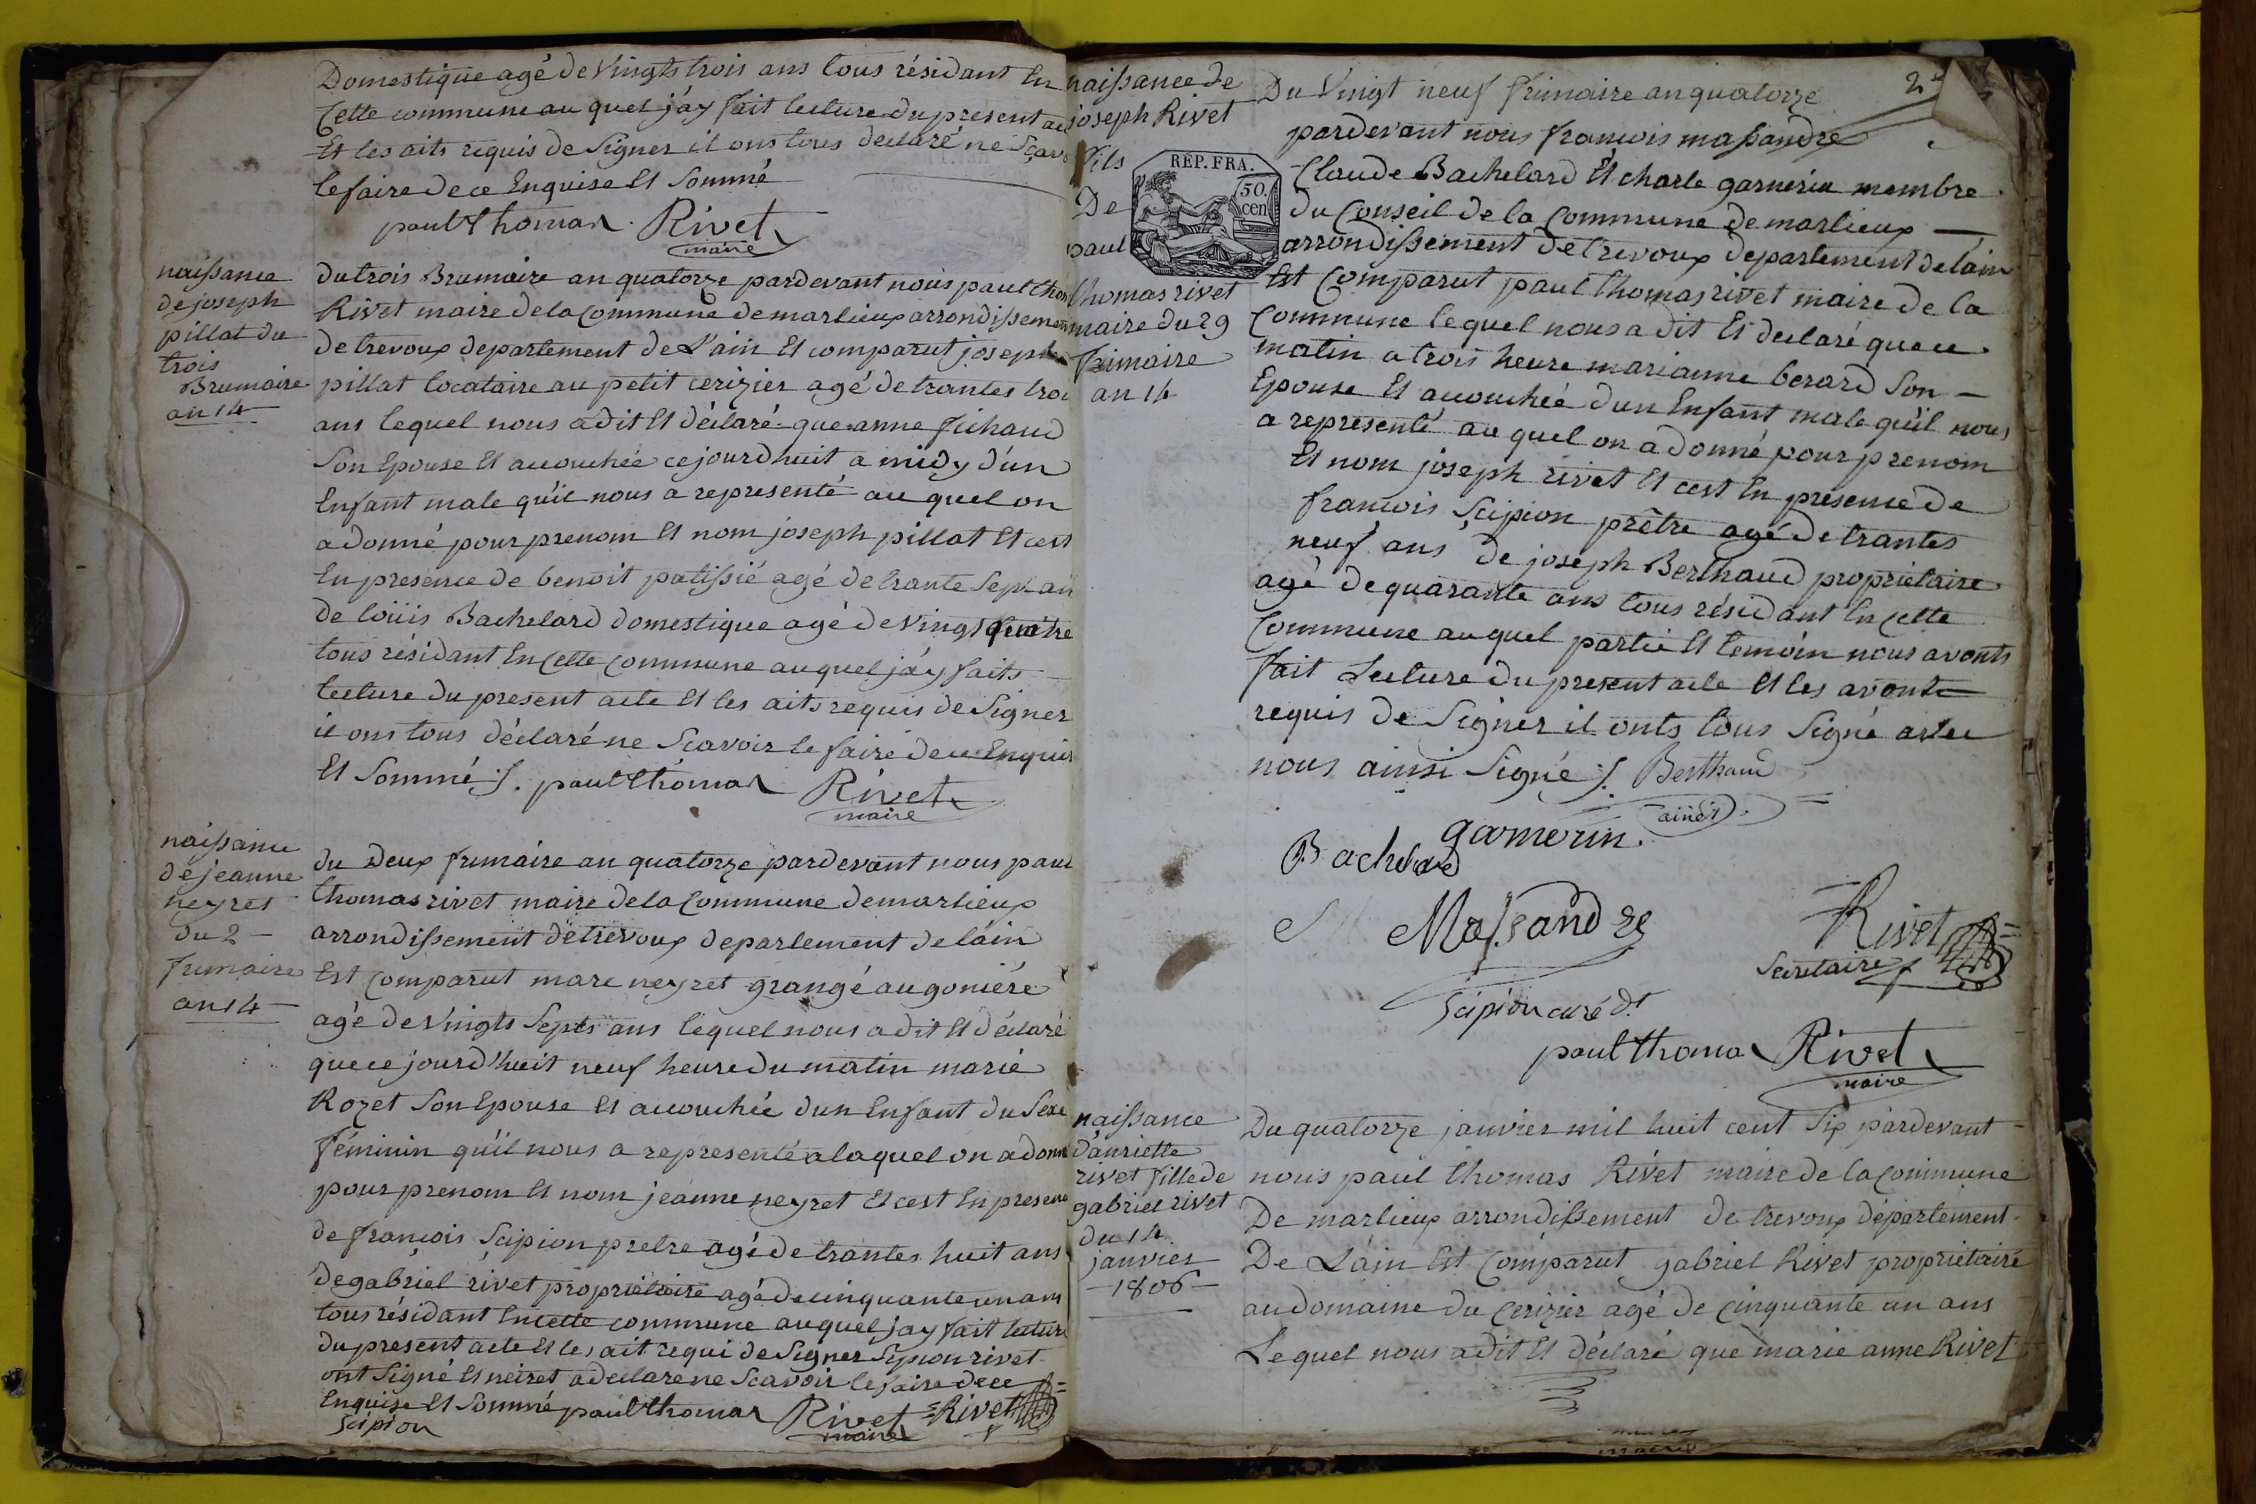 Domestique agé de vingts trois ans tous résidant En
Cette commune au quel j'ay fait lecture du present ac
Et les aits requis de Signer il ons tous declaré ne Sçavo
le faire de ce Enquise Et Sommé
paul thomas Rivet
maire
naissance
de joseph
pillat du
trois
Brumaire
an 14
du trois Brumaire an quatorze pardevant nous paul thom
Rivet maire de la Commune de marlieux arrondissemen
de trevoux departement de L'ain Et comparut joseph
pillat locataire au petit cerizier agé de trantes troi
ans lequel nous a dit Et déclaré que anne fichaud
Son Epouse Et acouchée ce jourd huit a midy d'un
Enfant male qu'il nous a representé au quel on
a donné pour prenom Et nom joseph pillat Et cest
En presence de benoit patissié agé de trante Sept an
de loüis Bachelard domestique agé de vingt quatre
tous résidant En Cette Commune au quel j'ay faits
lecture du present acte Et les aits requis de Signer
il ons tous déclaré ne Scavoir le faire de ce Enquis
Et Sommé ./. paul thomas Rivet
maire
naissance
de jeanne
neyret
du 2
frimaire
an 14
du Deux frimaire an quatorze pardevant nous paul
thomas rivet maire de la Commune de marlieux
arrondissement de trevoux departement de l'ain
Est Comparut marc neyret grangé au goniéré
agé de Vingts Septs ans lequel nous a dit Et déclaré
que ce jourd'huit neuf heure du matin marié
Rozet Son Epouse Et acouchée d'un Enfant du Sexe
féminin qu'il nous a representé a laquel on a donn
pour prenom Et nom jeanne neyret Et cest En presenc
de francois Scipion pretre agé de trantes huit ans
de gabriel rivet propriétaire agé de cinquante un ans
tous résidant En cette commune au quel j'ay fait lecture
du present acte Et les ait requi de Signer Sipion rivet
ont Signé Et neiret a declare ne Scavoir le faire de ce
Enquise Et Sommé paul thomas Rivet Rivet
maire
Scipion
naissance de
joseph Rivet
fils
De
paul
thomas rivet
maire du 29
frimaire
an 14
REP. FRA.
50.
cen
2
Du Vingt neuf frimaire an quatorze
pardevant nous francois massandre
Claude Bachelard Et charle garnerin membre
du Conseil de la Commune de marlieux
arrondissement de trevoux departement de l'ain
Est Comparut paul thomas rivet maire de la
Commune lequel nous a dit Et declaré que ce
matin a trois heure marianne berard Son
Epouse Et acouchée d'un Enfant male qu'il nous
a representé au quel on a donné pour prenom
Et nom joseph rivet Et cest En présence de
francois Scipion prêtre agé de trantes
neuf ans de joseph Berthaud propriétaire
agé de quarante ans tous résidant En Cette
Commune au quel partie Et temoin nous avonts
fait Lecture du present acte Et les avonts
requis de Signer il onts tous Signé avec
nous ainsi Signé ./. Berthaud
ainé
garnerin.
Bachelard
Massandre
Rivet
Secretaire
Scipion curé dt
paul thomas Rivet
maire
naissance
d'anriette
rivet fille de
gabriel rivet
du 14
janvier
1806
Du quatorze janvier mil huit cent Six pardevant
nous paul thomas Rivet maire de la Commune
De marlieux arrondissement de trevoux département
De L'ain Est Comparut gabriel Rivet propriétaire
au domaine du Cerizier agé de Cinquante un ans
Lequel nous a dit Et déclaré que marie anne Rivet